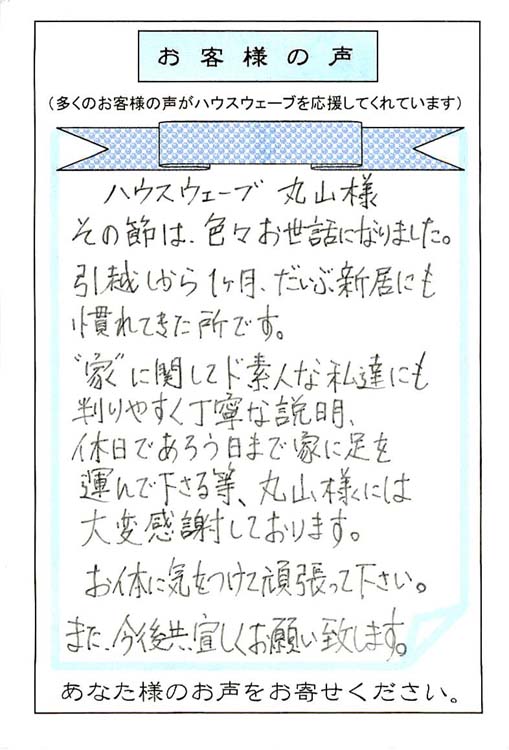 お客様の声
(多くのお客様の声がハウスウェーブを応援してくれています)
ハウスウェーブ 丸山様
その節は、色々お世話になりました。
引越しから1ヶ月、だいぶ新居にも
慣れてきた所です。
"家"に関してド素人な私達にも
判りやすく丁寧な説明、
休日であろう日まで家に足を
運んで下さる等、丸山様には
大変感謝しております。
お体に気をつけて頑張って下さい。
また、今後共宜しくお願い致します。
あなた様のお声をお寄せください。